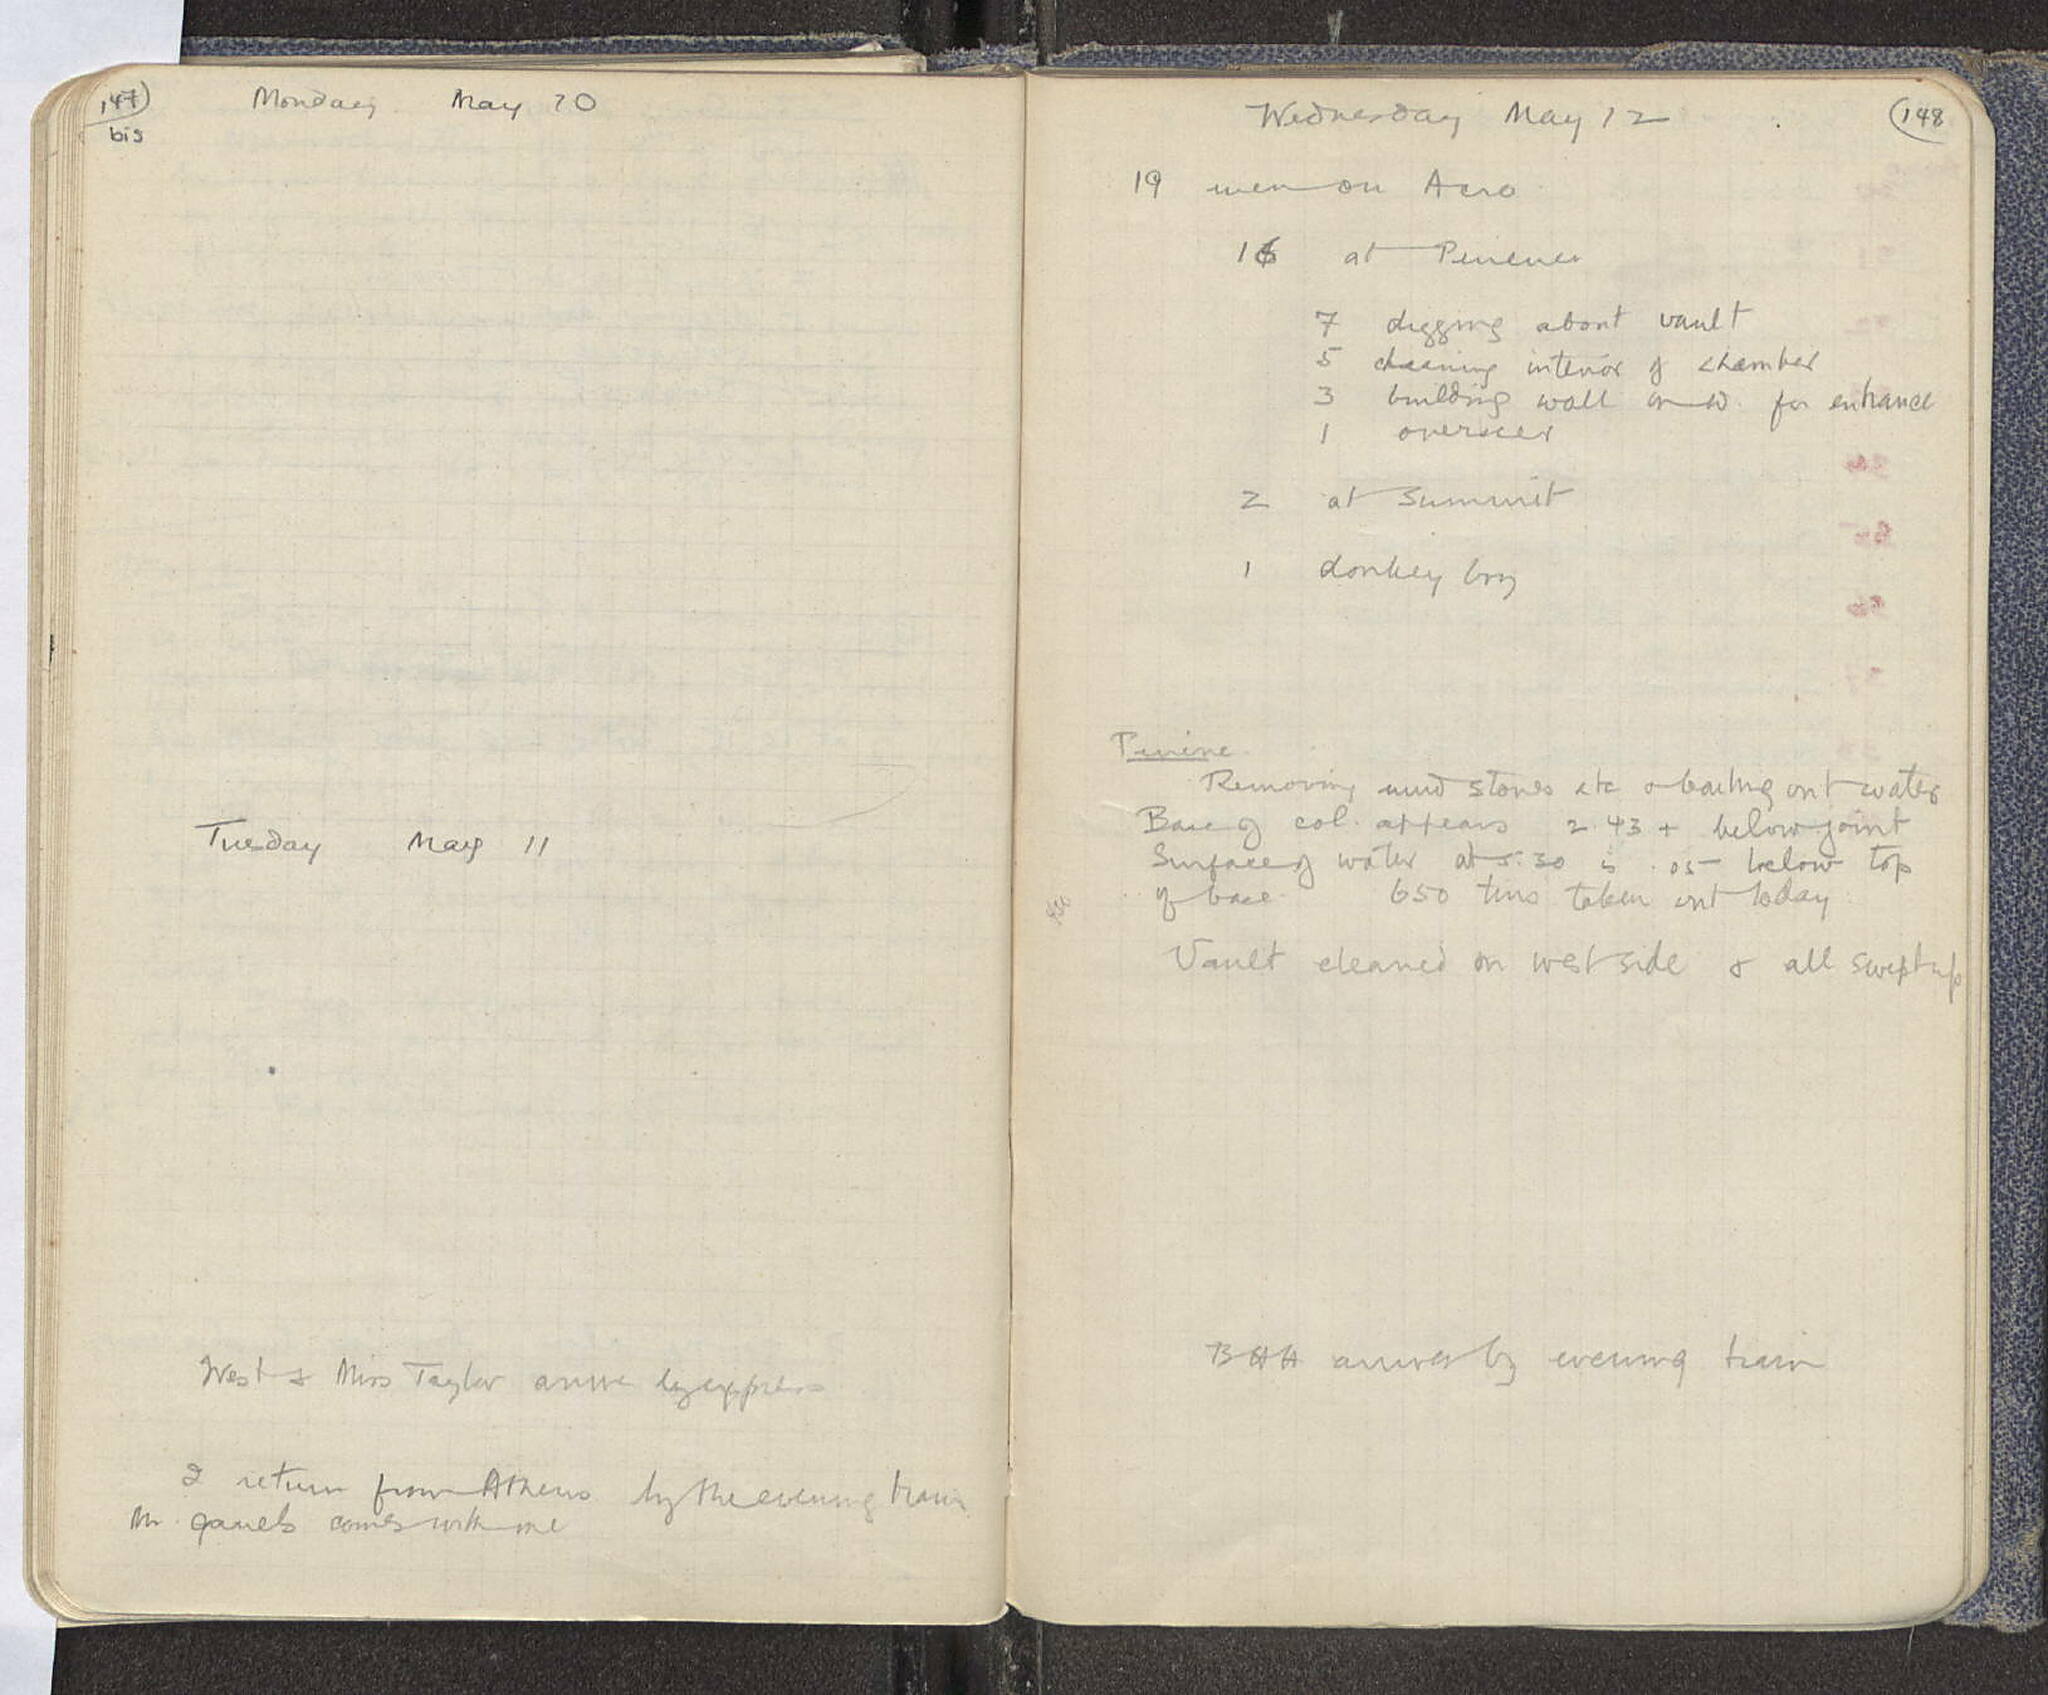 147
bis
Monday May 10
Tuesday May 11
West & Miss Taylor arrive by express
I return from Athens by the evening train
Mr. comes with me
148
Wednesday May 12
19 men on Acro
16 at Pirene
7 digging about vault
5 cleaning interior of chamber
3 building wall on W. for entrance
1 overseer
2 at Summit
1 donkey boy
Pirene
Removing mud stones etc & bailing out water
Base of col. appears 2.43 + below joint
Surface of water at 5.30 is .05 below top
of base 650 tins taken out today
Vault cleaned on west side & all swept up
BHH arrives by evening train